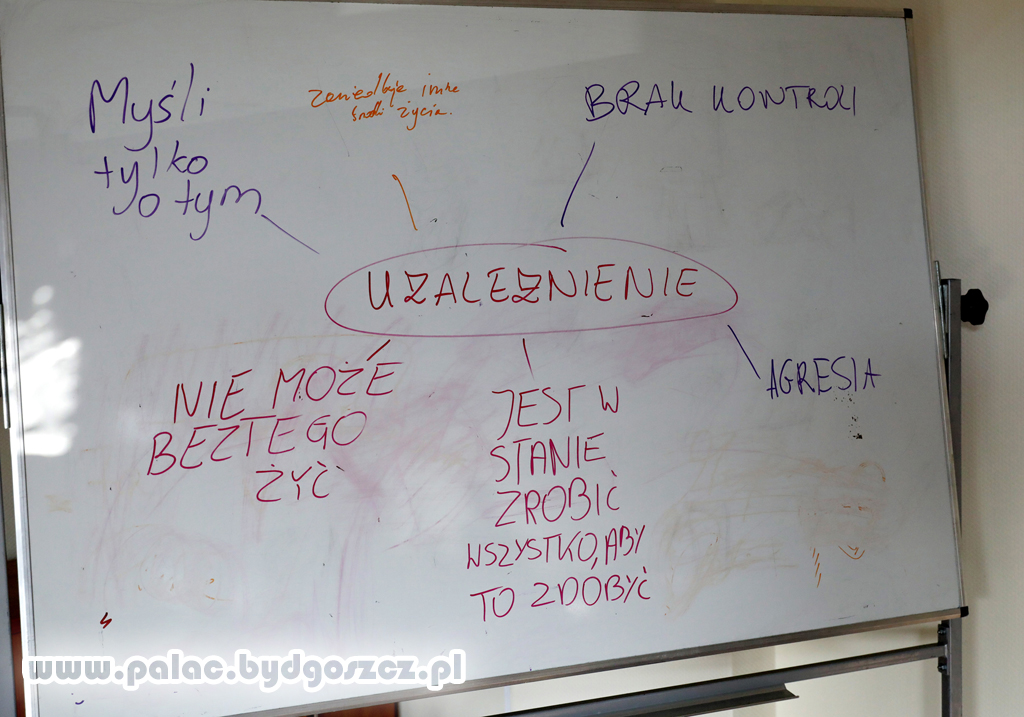 Myśli
tylko
o tym
zaniedbuje inne
życia.
BRAK KONTROLI
UZALEŻNIENIE
NIE MOŻE
BEZ TEGO
ŻYĆ
JEST W
STANIE
ZROBIĆ
WSZYSTKO, ABY
TO ZDOBYĆ
AGRESJA
www.palac.bydgoszcz.pl